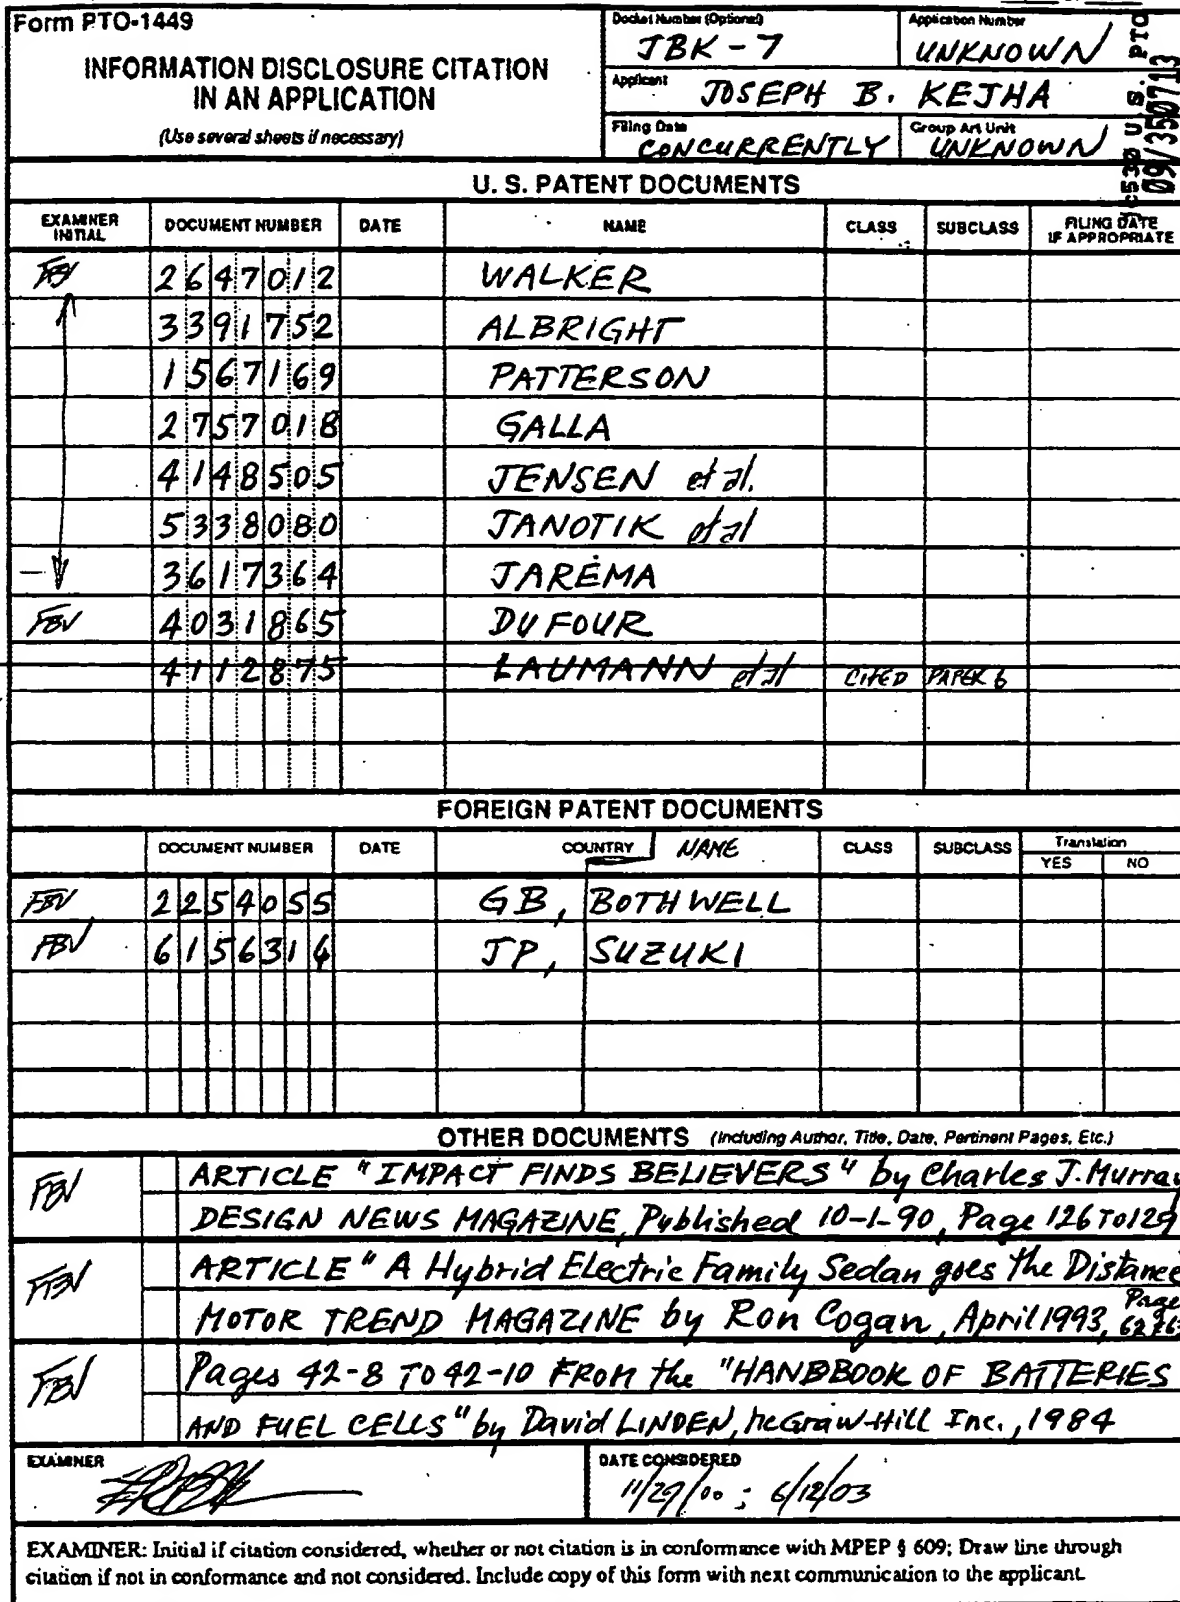 Form PTO-1449
INFORMATION DISCLOSURE CITATION
IN AN APPLICATION
(Use several sheets if necessary)
Docket Number (Optional)
JBK-7
Application Number
UNKNOWN
Applicant JOSEPH B. KEJHA
Filing Date
CONCURRENTLY
Group Art Unit
UNKNOWN
c530 U.S. PTO
09/350713
U. S. PATENT DOCUMENTS
EXAMINER INITIAL DOCUMENT NUMBER DATE NAME CLASS SUBCLASS FILING DATE IF APPROPRIATE
FBV 2647012 WALKER
3391752 ALBRIGHT
1567169 PATTERSON
2757018 GALLA
4148505 JENSEN et al.
5338080 JANOTIK et al
3617364 JAREMA
FBV 4031865 DUFOUR
4112875 LAUMANN et al CITED PAPER 6
FOREIGN PATENT DOCUMENTS
DOCUMENT NUMBER DATE COUNTRY NAME CLASS SUBCLASS Translation
YES NO
FBV 2254055 GB, BOTHWELL
FBV 6156316 JP, SUZUKI
OTHER DOCUMENTS (Including Author, Title, Date, Pertinent Pages, Etc.)
FBV ARTICLE "IMPACT FINDS BELIEVERS" by Charles J. Murray
DESIGN NEWS MAGAZINE, Published 10-1-90, Page 126 TO 129
FBV ARTICLE "A Hybrid Electric Family Sedan goes the Distance
MOTOR TREND MAGAZINE by Ron Cogan, April 1993, Page
FBV Pages 42-8 TO 42-10 FROM the "HANBBOOK OF BATTERIES
AND FUEL CELLS" by David LINDEN, McGraw-Hill Inc., 1984
EXAMINER
DATE CONSIDERED
11/29/00 ; 6/12/03
EXAMINER: Initial if citation considered, whether or not citation is in conformance with MPEP § 609; Draw line through
citation if not in conformance and not considered. Include copy of this form with next communication to the applicant.